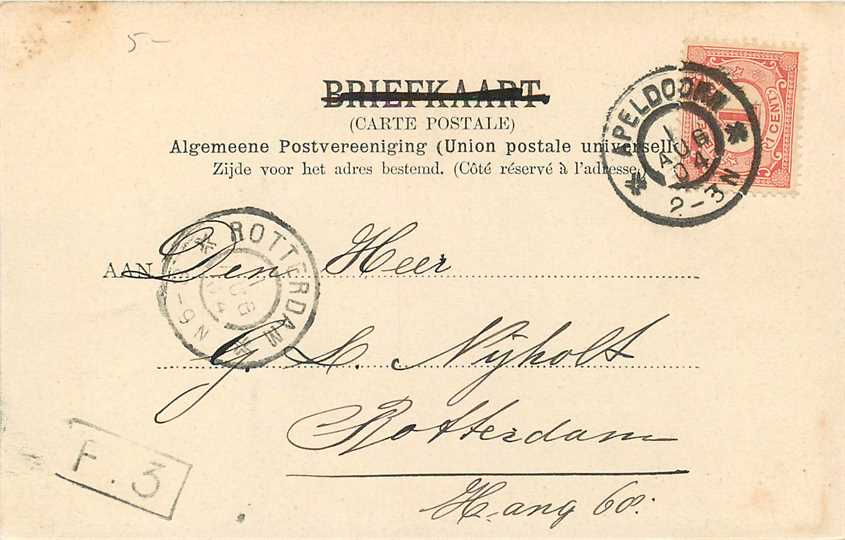 5-
BRIEFKAART.
(CARTE POSTALE)
Algemeene Postvereeniging (Union postale universelle)
Zijde voor het adres bestemd. (Côté réservé à l'adresse.)
1 CENT
APELDOORN
1 AUG 04
2-3N
ROTTERDAM
1 AUG 04
-6N
AAN Den Heer
Nijholt
Rotterdam
Hang 68.
F.3